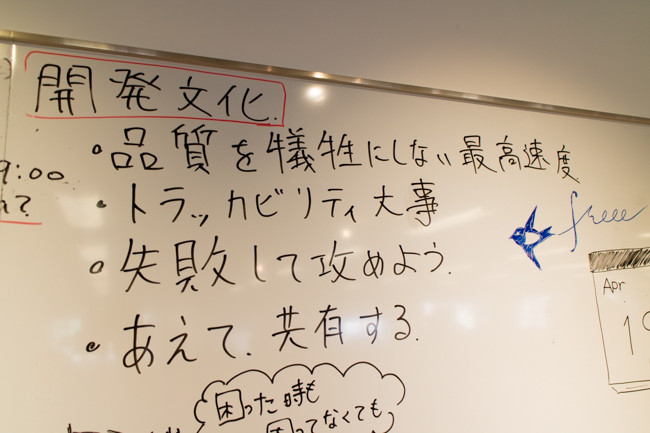 開発文化.
・品質を犠牲にしない最高速度
・トラッカビリティ大事
・失敗して攻めよう.
・あえて、共有する.
9:00
free
Apr
困った時も
困ってなくても